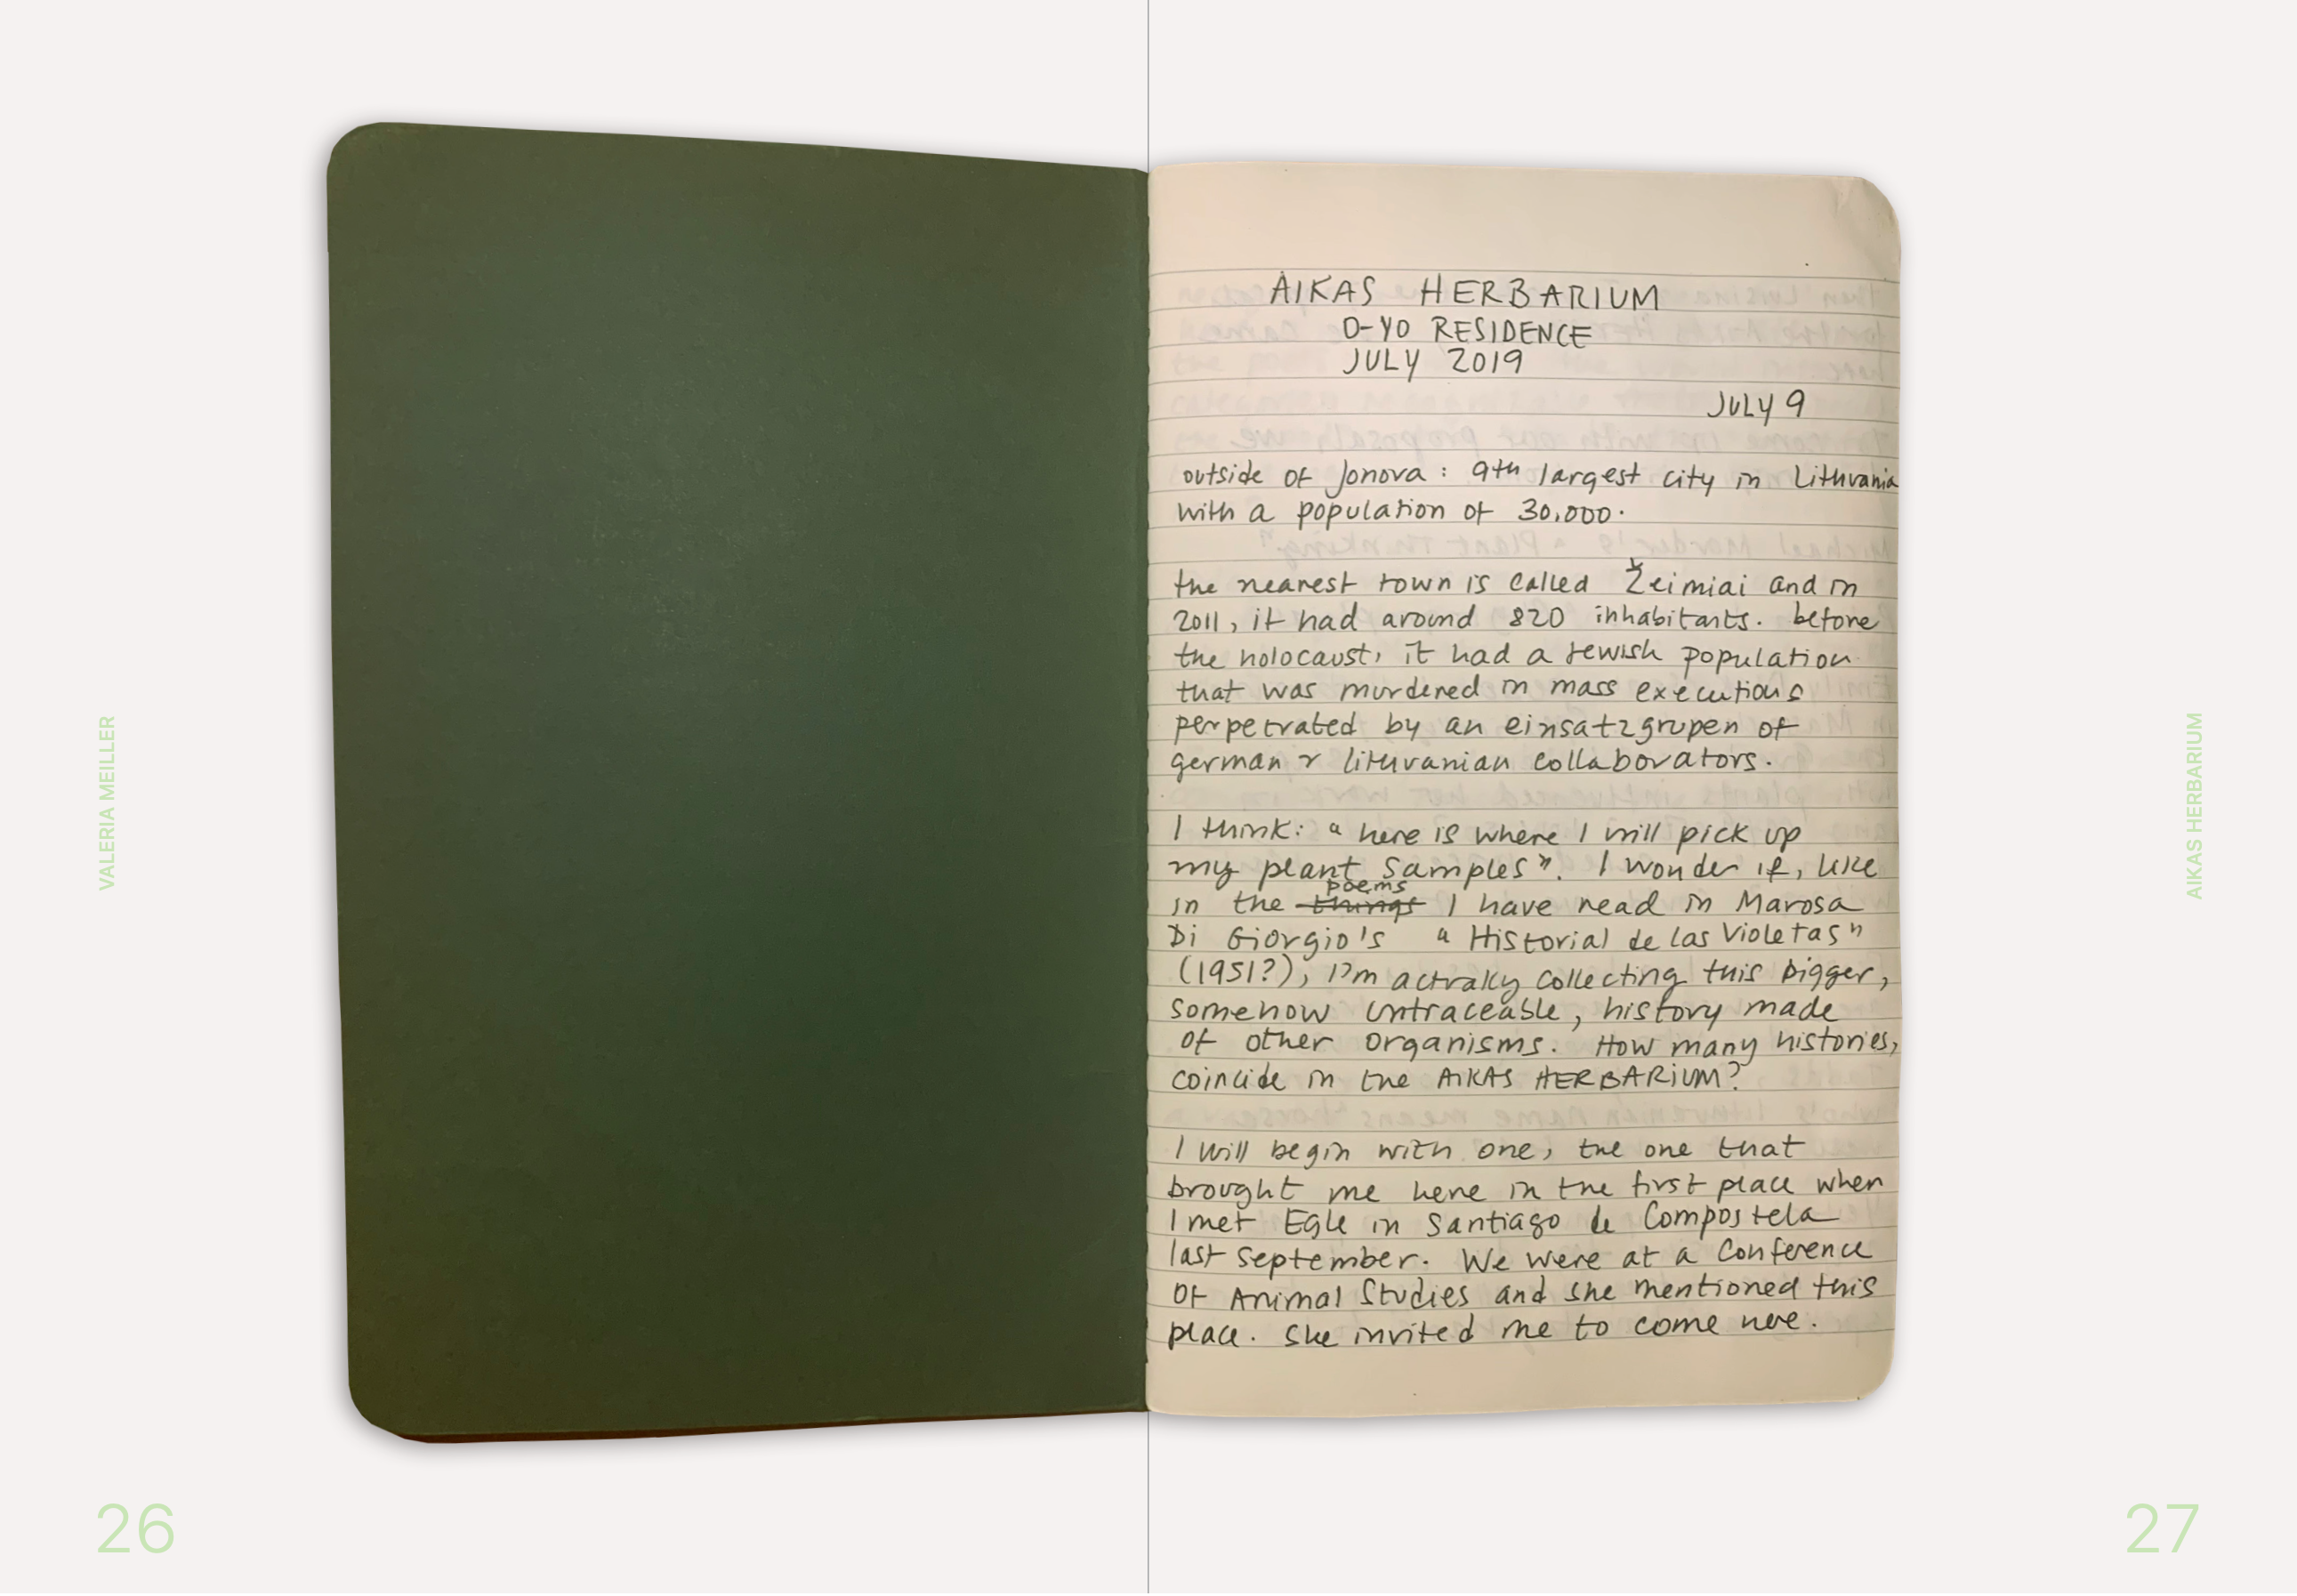 VALERIA MEILLER
26
AIKAS HERBARIUM
D-YO RESIDENCE
JULY 2019
JULY 9
outside of Jonova : 9th largest city in Lithuania
with a population of 30,000.
the nearest town is called Žeimiai and in
2011, it had around 820 inhabitants. before
the holocaust, it had a jewish population
that was murdered in mass executions
perpetrated by an einsatzgrupen of
german & lithuanian collaborators.
I think: "here is where I will pick up
my plant samples". I wonder if, like
in the ~~things~~ poems I have read in Marosa
Di Giorgio's "Historial de las Violetas"
(1951?), I'm actually collecting this bigger,
somehow untraceable, history made
of other organisms. How many histories,
coincide in the AIKAS HERBARIUM?
I will begin with one, the one that
brought me here in the first place when
I met Egle in Santiago de Compostela
last september. We were at a Conference
Of Animal Studies and she mentioned this
place. She invited me to come here.
AIKAS HERBARIUM
27